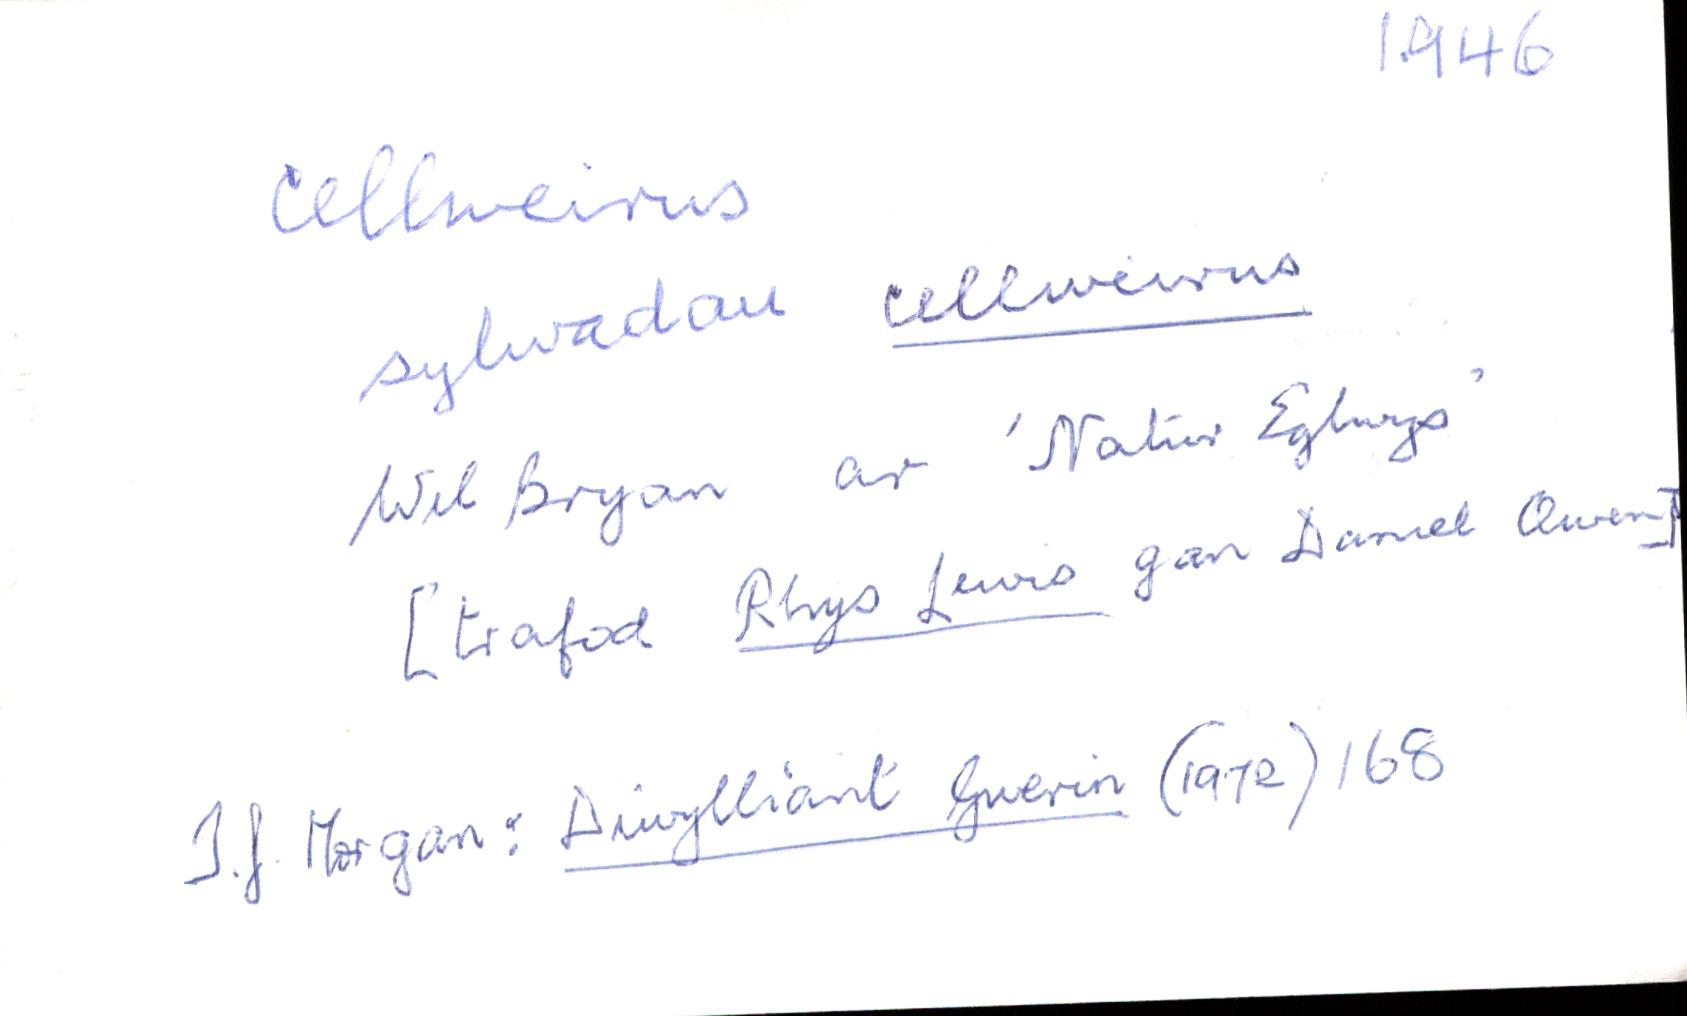 1946
cellweirus
sylwadau cellweirus
Wil Bryan ar 'Natur Eglwys'
[trafod Rhys Lewis gan Daniel Owen]
T.J. Morgan: Diwylliant Gwerin (1972) 168